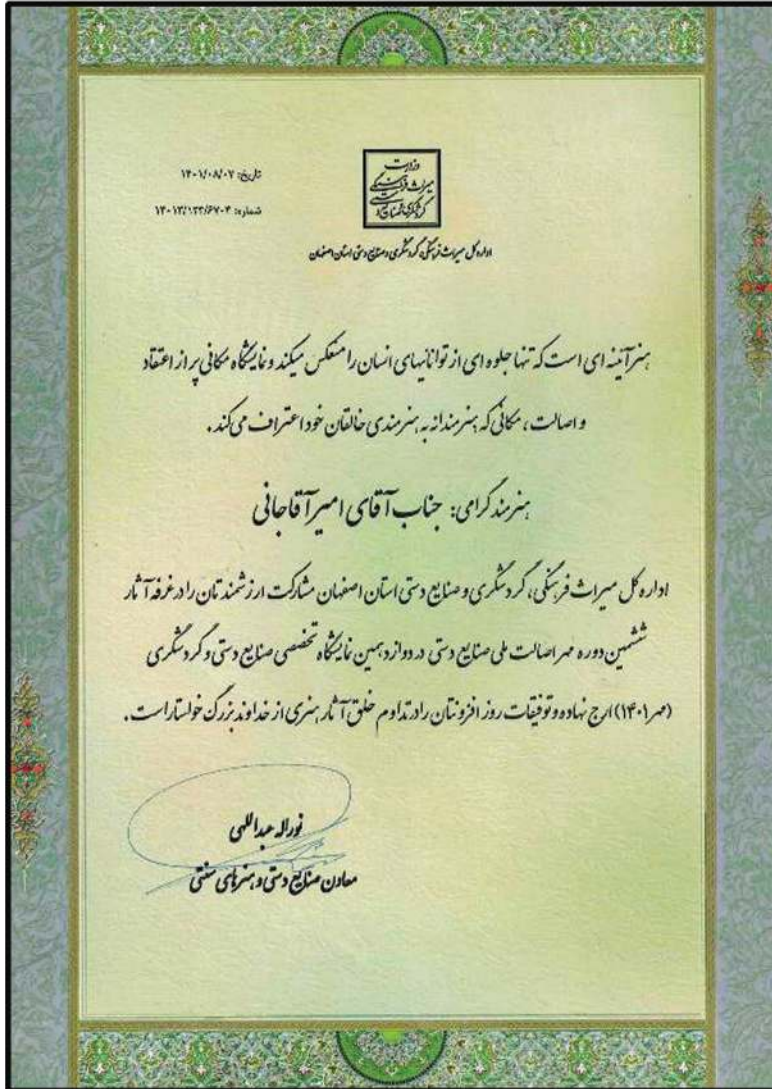 تاریخ: ۱۴۰۱/۰۸/۰۷
شماره: ۱۴۰۱۲/۱۲۲/۶۷۰۴
وزارت
میراث فرهنگی
گردشگری و صنایع دستی
اداره کل میراث فرهنگی، گردشگری و صنایع دستی استان اصفهان
هنر آئینه ای است که تنها جلوه ای از توانایهای انسان را منعکس میکند و نمایشگاه مکانی پر از اعتقاد
و اصالت، مکانی که هنرمندانه به هنرمندی خالقان خود اعتراف می کند.
هنرمند گرامی: جناب آقای امیر آقاجانی
اداره کل میراث فرهنگی، گردشگری و صنایع دستی استان اصفهان مشارکت ارزشمندتان را در غرفه آثار
ششمین دوره مهر اصالت ملی صنایع دستی در دوازدهمین نمایشگاه تخصصی صنایع دستی و گردشگری
(مهر ۱۴۰۱) ارج نهاده و توفیقات روز افزونتان را در تداوم خلق آثار هنری از خداوند بزرگ خواستار است.
نوراله عبداللهی
معاون صنایع دستی و هنرهای سنتی